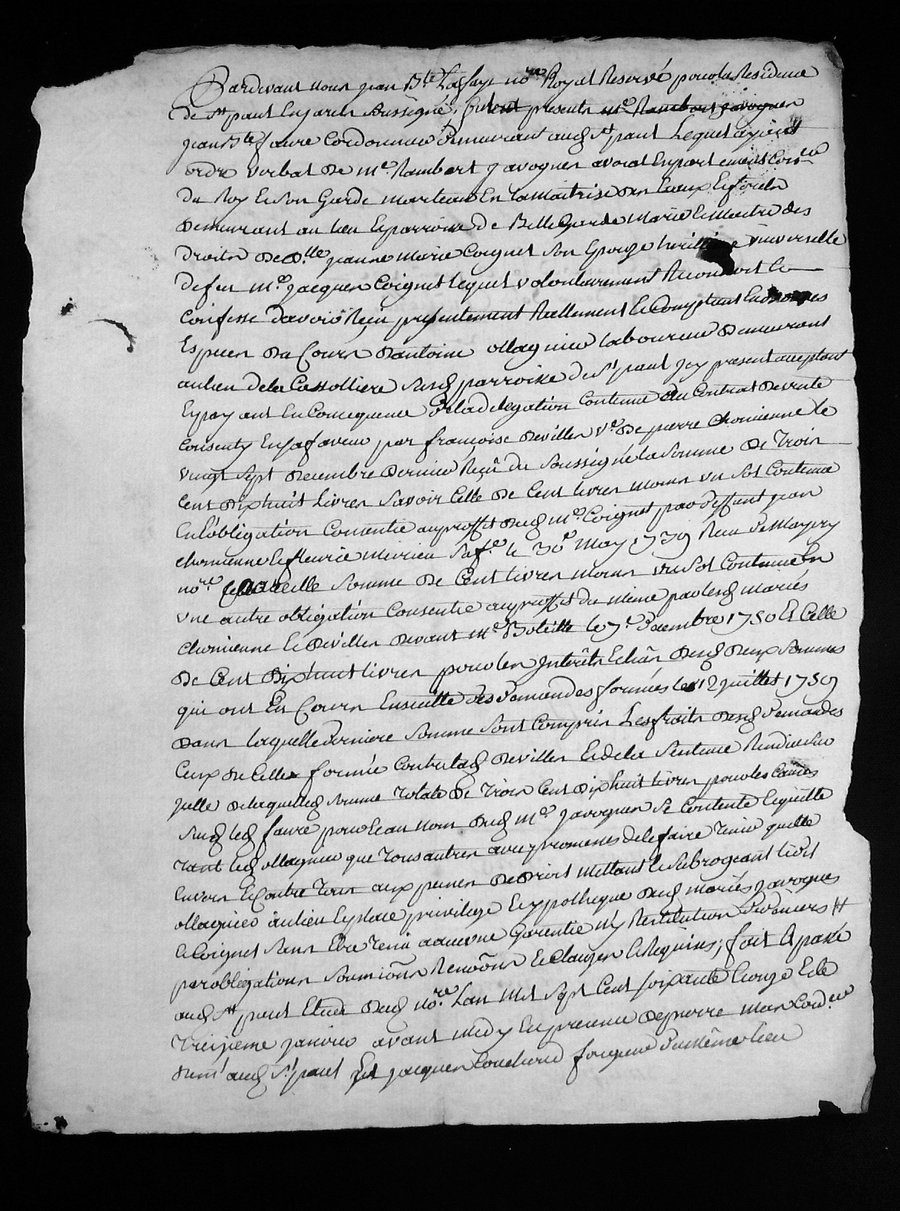 Pardevant nous jean B.te Lafay no.re Royal Reservé pour la Residence
de St paul En jarch soussigné, fut present m.e Rambert javoguen
jean B.te favre Cordonnier Demeurant aud St paul Lequel ayant
ordre verbal de m.e Rambert javoguen avocat En parlement Con.er
du Roy et son Garde marteau En la maitrise des Eaux Et forets
Demeurant au lieu Et parroisse de Bellegarde Marie Et Maitre des
droits de D.lle jeanne Marie Coignet son Epouse heritiere universelle
de feu m.e jacques Coignet Lequel volontairement Reconnoit Et
Confesse d'avoir Reçu presentement Reellement Et Comptant En
Especes du Cours d'antoine ollagnier laboureur Demeurant
au lieu de la Cassolliere susd parroisse de St paul jcy present acceptant
Et payant En Consequence de la delegation Contenue au Contrat de vente
Consenty En sa faveur par françoise deviller v.e de pierre Chomienne le
vingt sept Decembre dernier Reçu du soussigné la somme de Trois
Cent dix huit Livres savoir Celle de Cent livres moins un sol Contenue
En l'obligation Consentie au proffit dud m.e Coignet par deffunt jean
chomienne Et fleurie mercier sa f.e le 30.e May 1739 Reçu
no.re Pareille somme de Cent livres moins un sol Contenue En
une autre obligation Consentie au proffit du meme par lesd mariés
Chomienne Et deviller devant M.e le 7.e Xbre 1750 Et Celle
de Cent dix huit livres pour les Interêts Echus desd deux sommes
qui ont Eu Cours Ensuitte des demandes formées le 12 juillet 1759
dans laquelle derniere somme sont Compris Les fraits desd demandes
Ceux de Celle formée Contre lad deviller Et de la sentence Rendue sur
jcelle de laquelle somme totale de Trois Cent dix huit livres pour les Causes
susd led favre pour Et au nom dud m.e javoguen se Contente Et quitte
tant led ollagnier que tous autres avec promesse de le faire tenir quitte
Envers Et Contre tous aux peines de droit mettant Et subrogeant led
ollagnier au lieu Et place privilege Et hypotheque desd mariés javogues
Et Coignet sans Etre tenu a aucune Garentie ny Restitution de deniers #
par obligations soumiōns Renoōns Et Clauses Et Requises; fait Et passé
aud St paul Etude dud no.re L'an Mil sept Cent soixante Et Le
treizieme janvier avant midy En presence de pierre Cord.er
dem.t aud St paul Et jacques Couchoud forgeur du même lieu